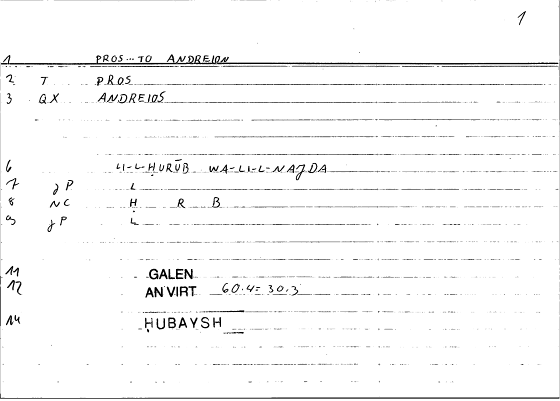 1
1 PROS...TO ANDREION
2 T PROS
3 QX ANDREIOS
6 LI-L-ḤURŪB WA-LI-L-NAJDA
7 JP L
8 NC Ḥ R B
9 JP L
11 GALEN
12 AN VIRT 60.4 = 30.3
14 ḤUBAYSH